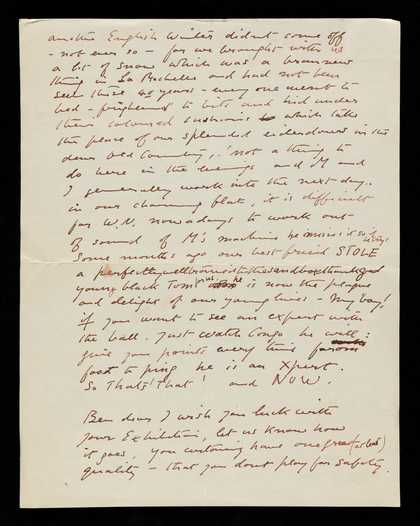 another English Winter didnt come off
- not ever so - for we brought with us
a bit of snow which was a bran new
thing in La Rochelle and had not been
seen there 40 years - every one went to
bed - frightened to bits and hid under
their coloured cushions which take
the place of our splendid eiderdowns in the
dear Old Country,.! not a thing to
do here in the evenings and M and
I generally work into the next day..
in our charming flat, it is difficult
for W.N. nowadays to work out
of sound of M's machine he insists it is
Some months ago our best friend STOLE
a perfectly
young black Tom he is now the plague
and delight of our young lives - My boy!
if you want to see an expert with
the ball. Just watch Congo he will:
give you points every time from
foot to ping he is an Xpert.
So Thats! That! and NOW.
Ben dear I wish you luck with
your Exhibition, let us know how
it goes, you certainly have one great (or bad)
quality - that you dont play for Safety